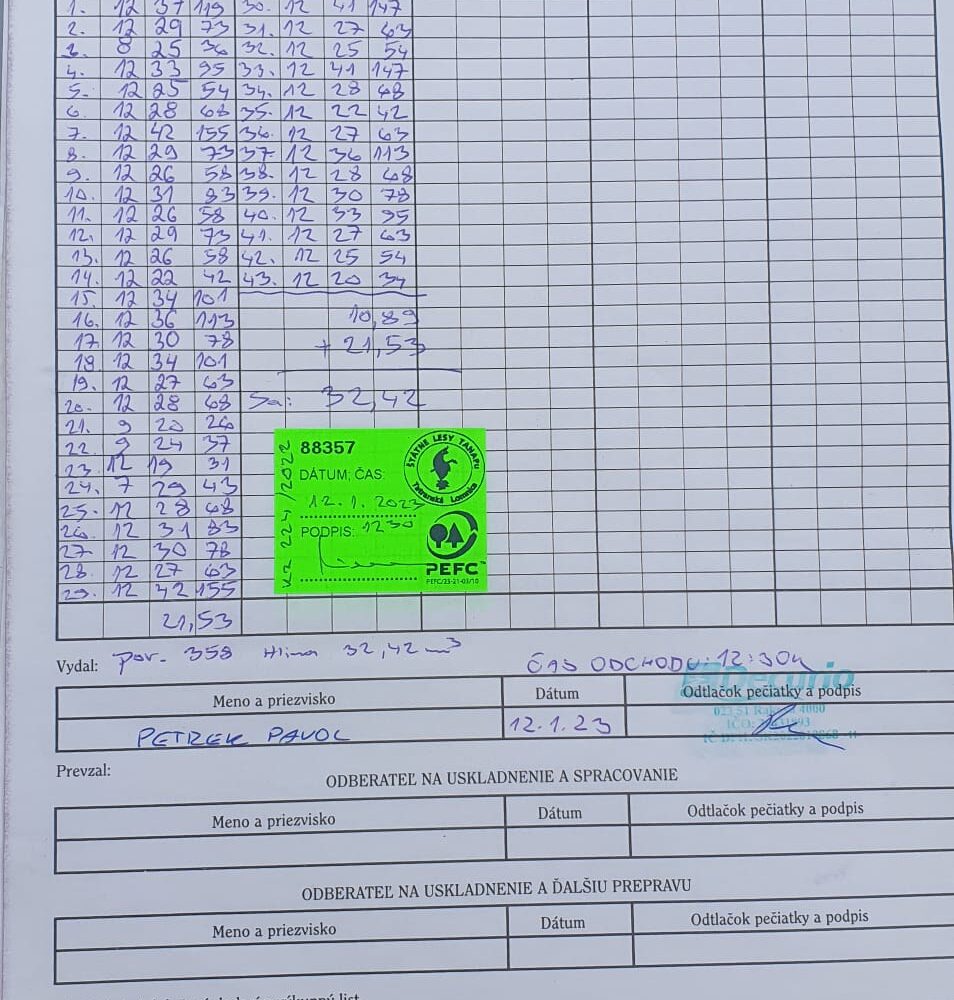 1. 12 37 119 30. 12 41 147
2. 12 29 73 31. 12 27 63
3. 8 25 36 32. 12 25 54
4. 12 33 95 33. 12 41 147
5. 12 25 54 34. 12 28 68
6. 12 28 68 35. 12 22 42
7. 12 42 155 36. 12 27 63
8. 12 29 73 37. 12 36 113
9. 12 26 58 38. 12 28 68
10. 12 31 83 39. 12 30 78
11. 12 26 58 40. 12 33 95
12. 12 29 73 41. 12 27 63
13. 12 26 58 42. 12 25 54
14. 12 22 42 43. 12 20 34
15. 12 34 101
16. 12 36 113 10,89
17. 12 30 78 + 21,53
18. 12 34 101
19. 12 27 63
20. 12 28 68 Sa: 32,42
21. 9 20 26
22. 9 24 37
23. 12 19 31
24. 7 29 43
25. 12 28 68
26. 12 31 83
27. 12 30 78
28. 12 27 63
29. 12 42 155
21,53
88357
DÁTUM, ČAS:
12.1.2023
PODPIS: 1230
ŠTÁTNE LESY TANAPU
Tatranská Lomnica
PEFC™
PEFC/23-21-03/10
Vydal: por. 358 Hlina 32,42 m³
ČAS ODCHODU: 12:30h
Meno a priezvisko Dátum Odtlačok pečiatky a podpis
PETREK PAVOL 12.1.23
Prevzal:
ODBERATEĽ NA USKLADNENIE A SPRACOVANIE
Meno a priezvisko Dátum Odtlačok pečiatky a podpis
ODBERATEĽ NA USKLADNENIE A ĎALŠIU PREPRAVU
Meno a priezvisko Dátum Odtlačok pečiatky a podpis